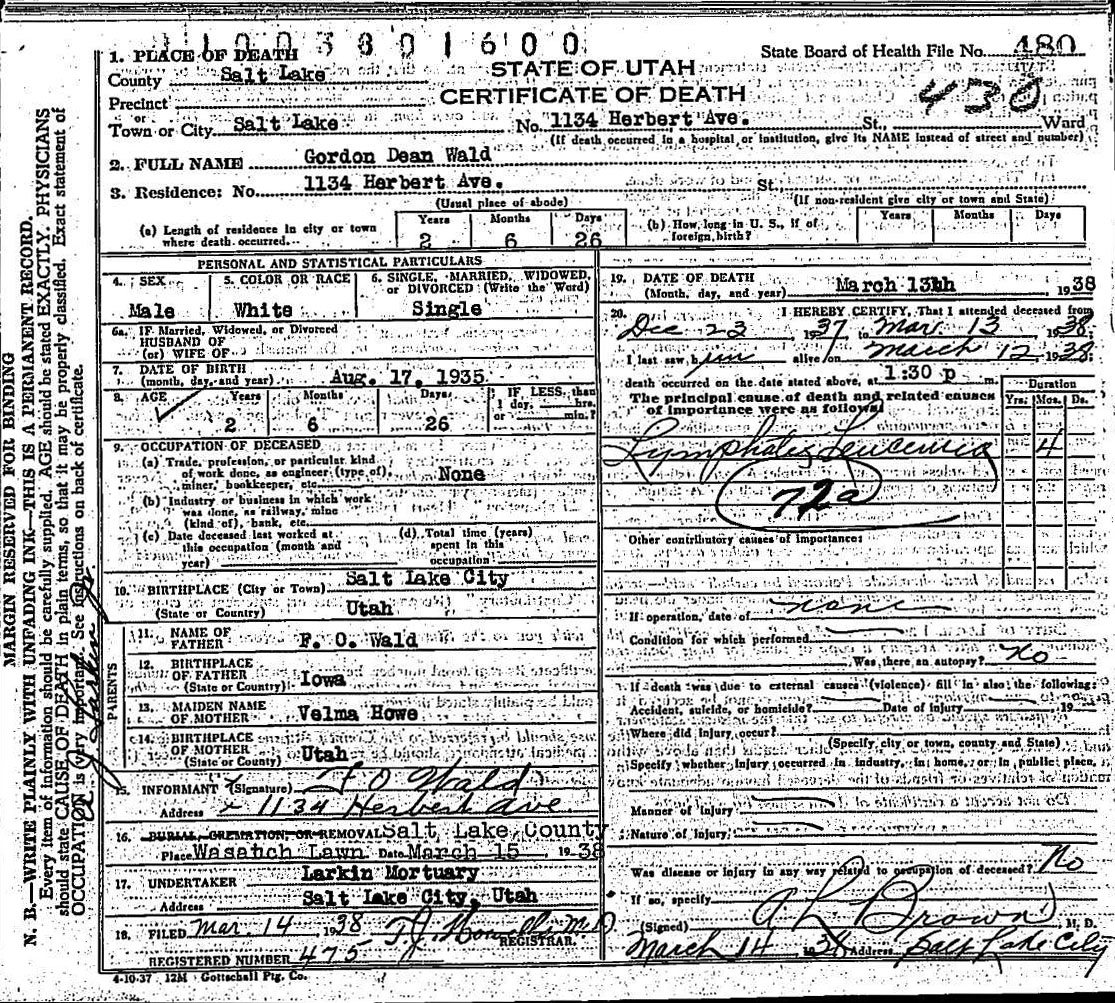 11003801600
State Board of Health File No. 480
1. PLACE OF DEATH
County Salt Lake
STATE OF UTAH
CERTIFICATE OF DEATH
438
Precinct
or
Town or City Salt Lake No. 1134 Herbert Ave. St., Ward
(If death occurred in a hospital or institution, give its NAME instead of street and number)
2. FULL NAME Gordon Dean Wald
3. Residence: No. 1134 Herbert Ave. St.
(Usual place of abode) (If non-resident give city or town and State)
Years Months Days
(a) Length of residence in city or town where death occurred 2 6 26
(b) How long in U. S., if of foreign birth? Years Months Days
PERSONAL AND STATISTICAL PARTICULARS
4. SEX 5. COLOR OR RACE 6. SINGLE, MARRIED, WIDOWED, or DIVORCED (Write the Word)
Male White Single
6a. IF Married, Widowed, or Divorced
HUSBAND OF
(or) WIFE OF
7. DATE OF BIRTH
(month, day, and year) Aug. 17, 1935
8. AGE Years Months Days IF LESS than
1 day, hrs.
or min.?
2 6 26
9. OCCUPATION OF DECEASED
(a) Trade, profession, or particular kind
of work done, as engineer (type of),
miner, bookkeeper, etc. None
(b) Industry or business in which work
was done, as railway, mine
(kind of), bank, etc.
(c) Date deceased last worked at
this occupation (month and
year)
(d) Total time (years)
spent in this
occupation
10. BIRTHPLACE (City or Town) Salt Lake City
(State or Country) Utah
PARENTS
11. NAME OF
FATHER F. O. Wald
12. BIRTHPLACE
OF FATHER
(State or Country) Iowa
13. MAIDEN NAME
OF MOTHER Velma Howe
14. BIRTHPLACE
OF MOTHER
(State or Country) Utah
15. INFORMANT (Signature) F O Wald
Address 1134 Herbert Ave
16. BURIAL, CREMATION, OR REMOVAL Salt Lake County
Place Wasatch Lawn Date March 15 1938
17. UNDERTAKER Larkin Mortuary
Address Salt Lake City, Utah
18. FILED Mar. 14 1938 T. J. Howells M.D.
REGISTRAR.
REGISTERED NUMBER 475
4-10-37 12M Gottschall Ptg. Co.
19. DATE OF DEATH
(Month, day, and year) March 13th 1938
20. I HEREBY CERTIFY, That I attended deceased from
Dec 23 1937 to Mar. 13 1938
I last saw him alive on March 12 1938
death occurred on the date stated above, at 1:30 p m.
The principal cause of death and related causes
of importance were as follows:
Duration
Yrs. Mos. Ds.
Lymphatic Leucemia 4
72a
Other contributory causes of importance:
If operation, date of none
Condition for which performed
Was there an autopsy? No
If death was due to external causes (violence) fill in also the following:
Accident, suicide, or homicide? Date of injury 19
Where did injury occur?
(Specify city or town, county and State)
Specify whether injury occurred in industry, in home, or in public place.
Manner of injury
Nature of injury
Was disease or injury in any way related to occupation of deceased? No
If so, specify
(Signed) A L Brown M. D.
March 14 1938 Address Salt Lake City
MARGIN RESERVED FOR BINDING
N. B.—WRITE PLAINLY WITH UNFADING INK—THIS IS A PERMANENT RECORD.
Every item of information should be carefully supplied. AGE should be stated EXACTLY. PHYSICIANS
should state CAUSE OF DEATH in plain terms, so that it may be properly classified. Exact statement of
OCCUPATION is very important. See instructions on back of certificate.
Larkin